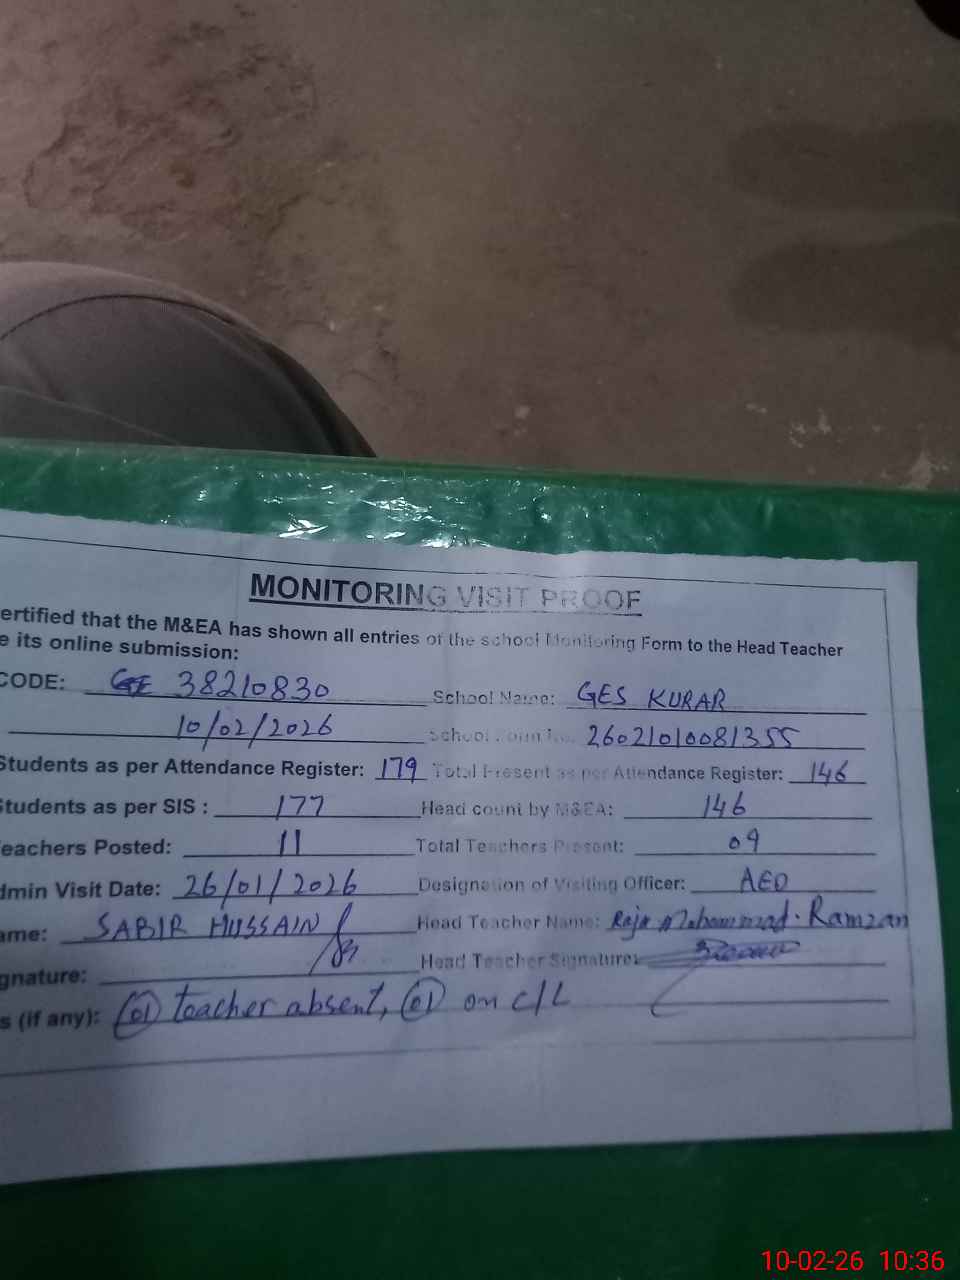 MONITORING VISIT PROOF
ertified that the M&EA has shown all entries of the school Monitoring Form to the Head Teacher
e its online submission:
CODE: GE 38210830 School Name: GES KURAR
10/02/2026 School Form No. 26021010081355
Students as per Attendance Register: 179 Total Present as per Attendance Register: 146
Students as per SIS : 177 Head count by M&EA: 146
eachers Posted: 11 Total Teachers Present: 09
dmin Visit Date: 26/01/2026 Designation of Visiting Officer: AEO
ame: SABIR HUSSAIN Head Teacher Name: Raja Mohammad. Ramzan
gnature: Head Teacher Signature:
s (if any): 01 teacher absent, 01 on c/L
10-02-26 10:36